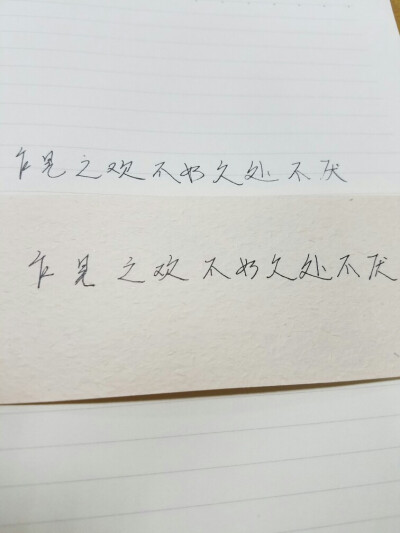 乍见之欢不如久处不厌
乍见之欢不如久处不厌